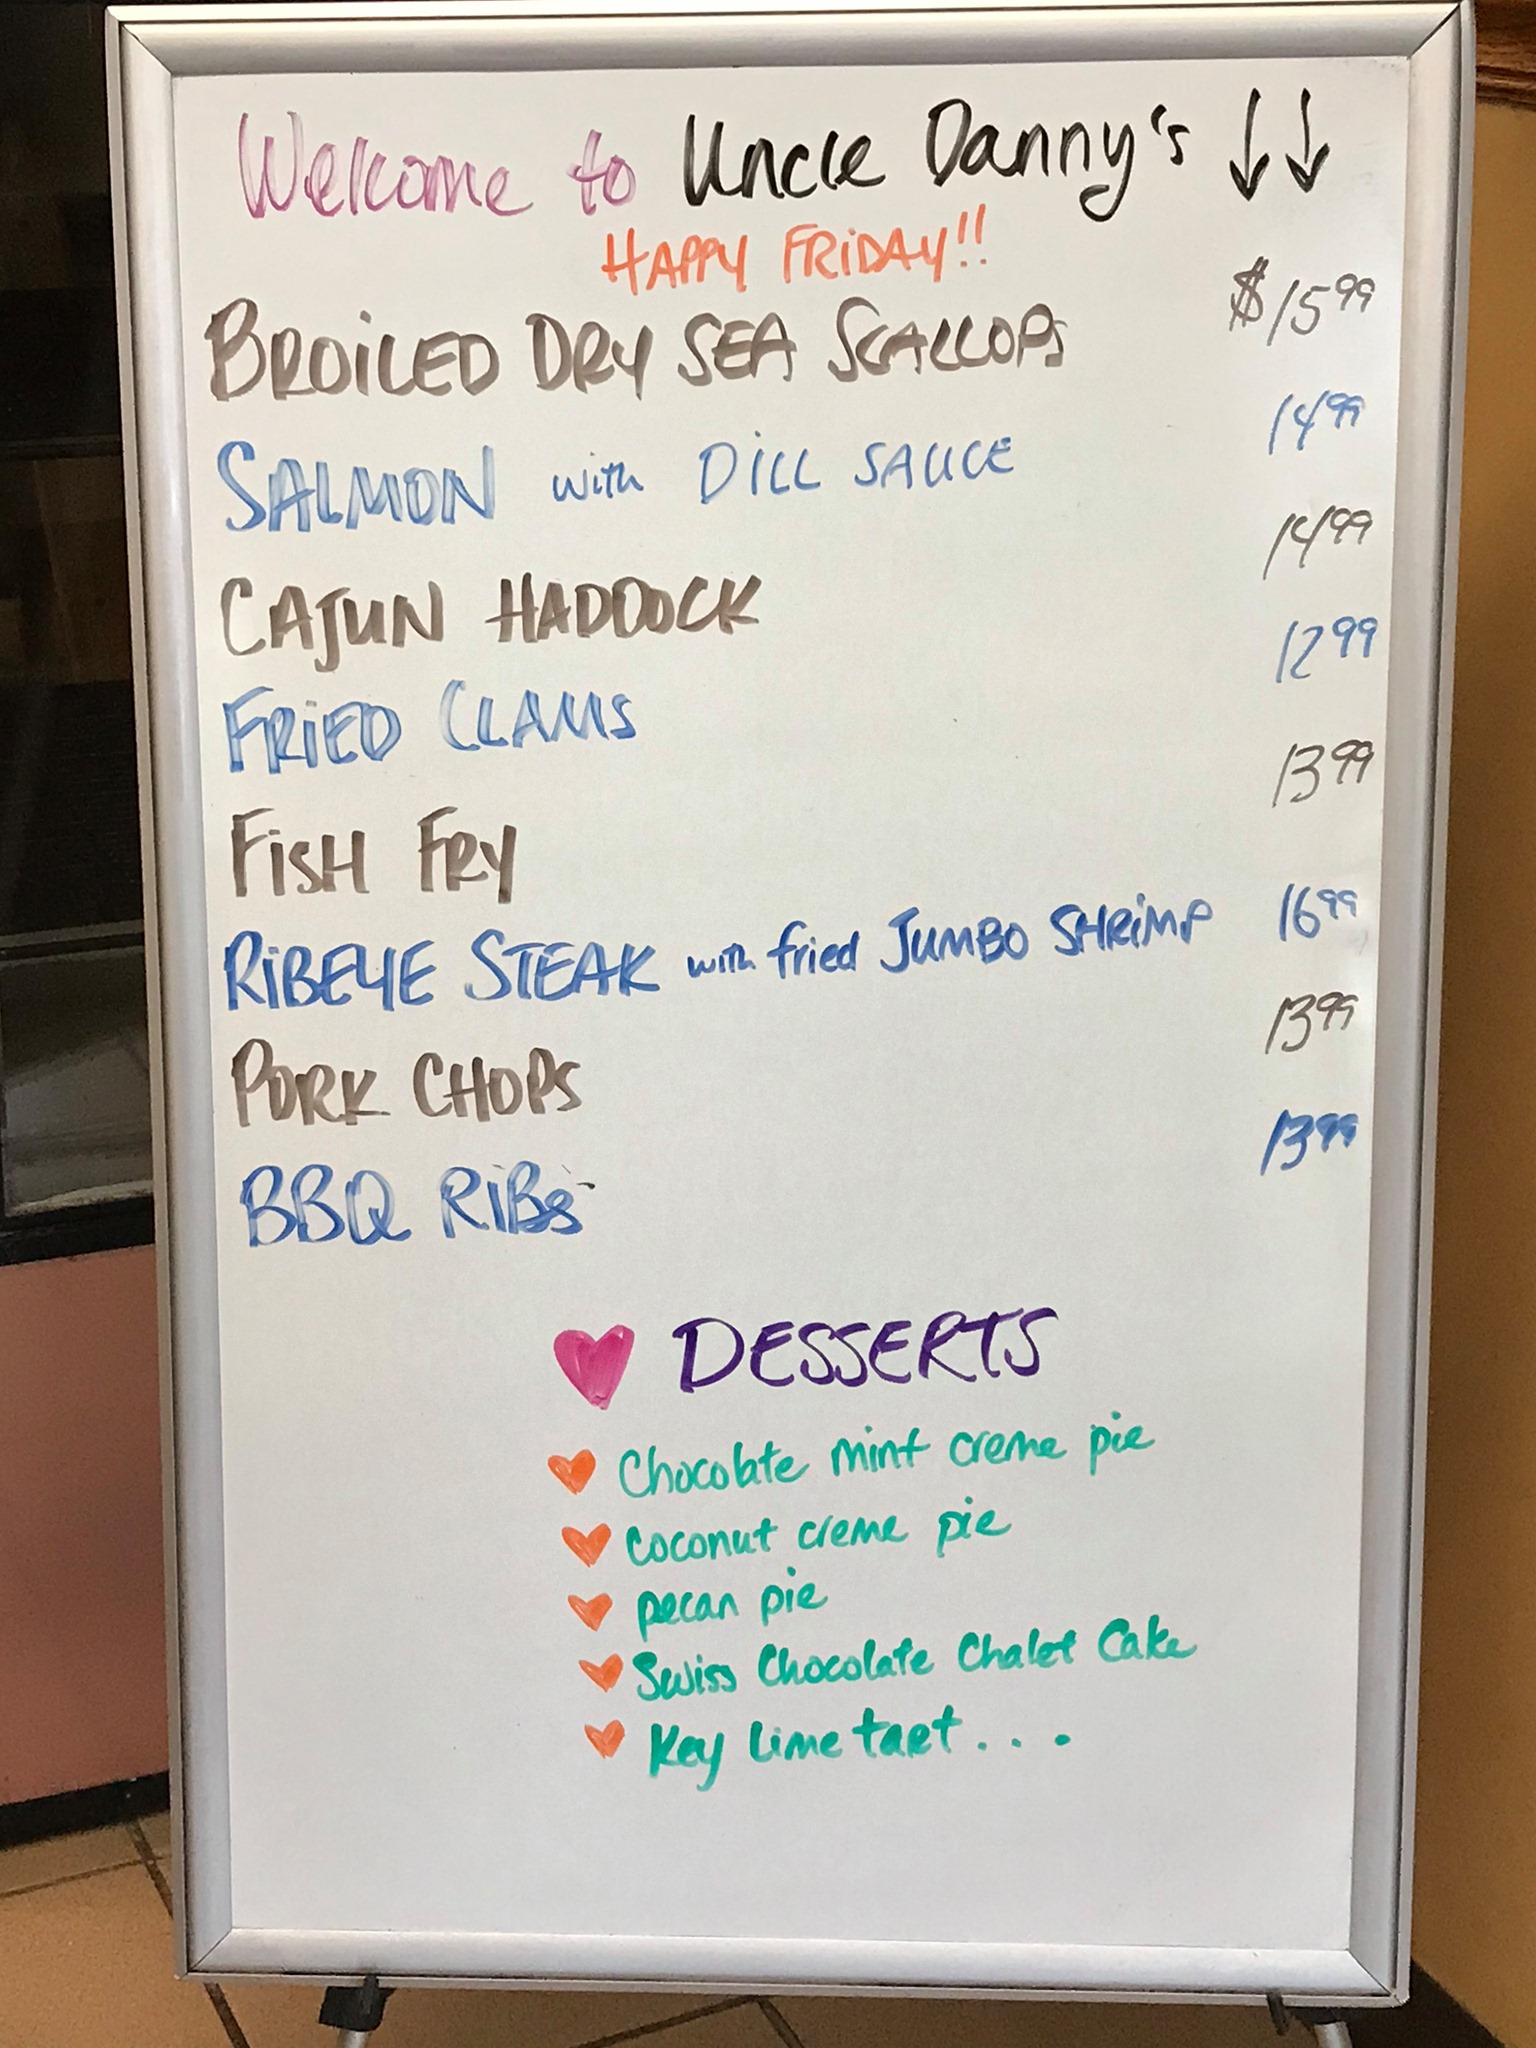 Welcome to Uncle Danny's ↓↓
HAPPY FRiDAY!!
BROiLED DRY SEA SCALLOPS $15.99
SALMON with DiLL SAUCE 14.99
CAJUN HADDOCK 14.99
FRiED CLAMS 12.99
FiSH FRY 13.99
RiBEYE STEAK with fried JUMBO SHRiMP 16.99
PORK CHOPS 13.99
BBQ RiBs 13.99
DESSERTS
Chocolate mint creme pie
coconut creme pie
pecan pie
Swiss Chocolate Chalet Cake
Key Lime tart....